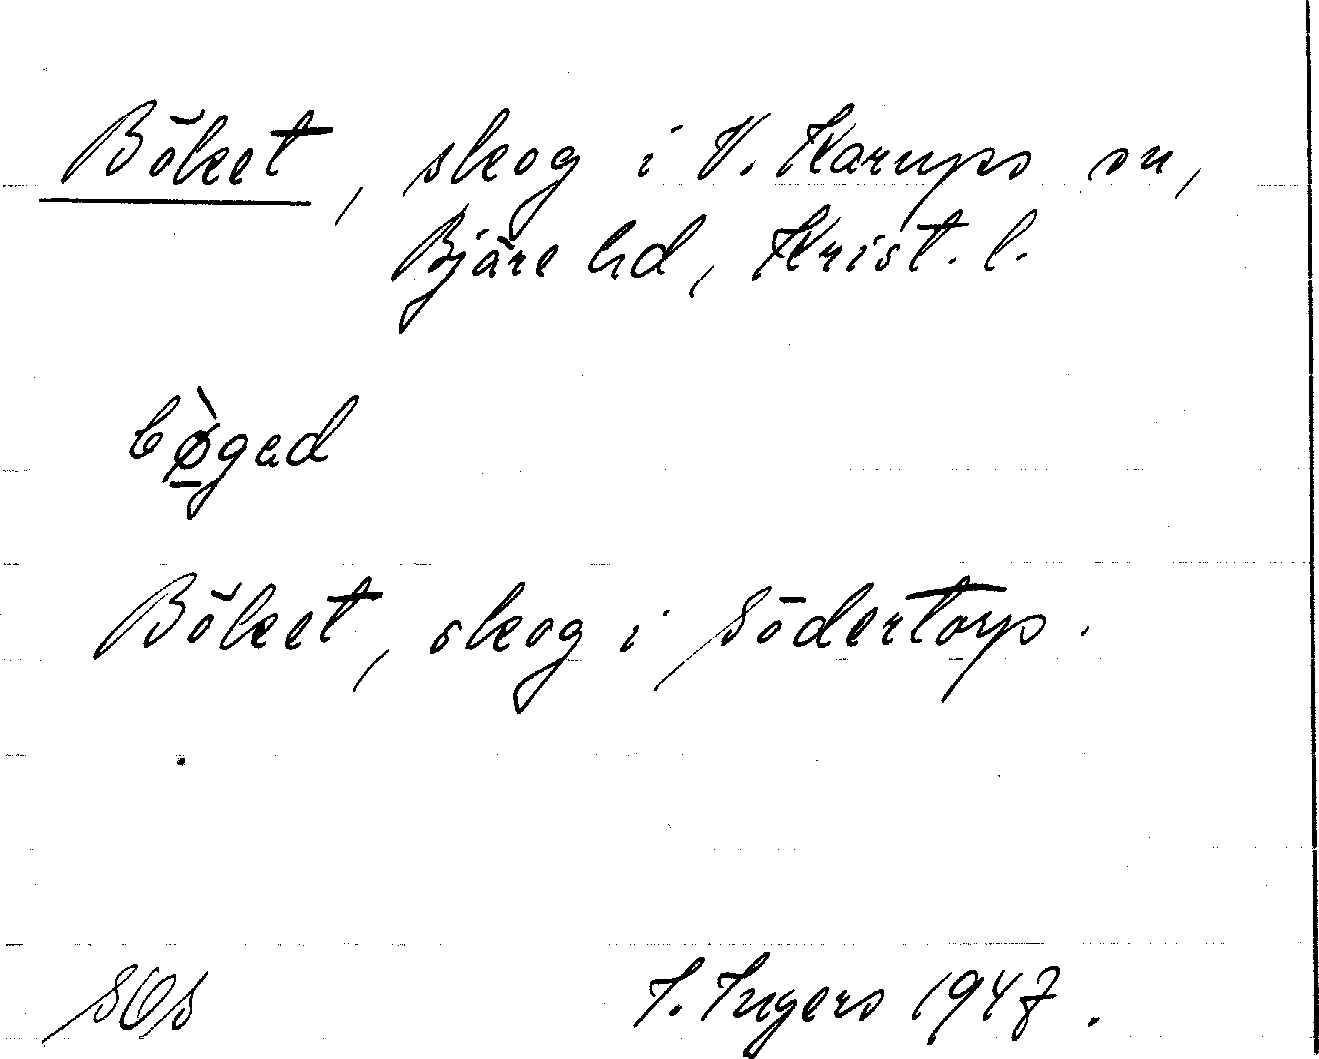 Böket, skog i V. Karups sn,
Bjäre hd, Krist. l.
bø̠̀gad
Böket, skog i Södertorp.
SOS I. Ingers 1947.